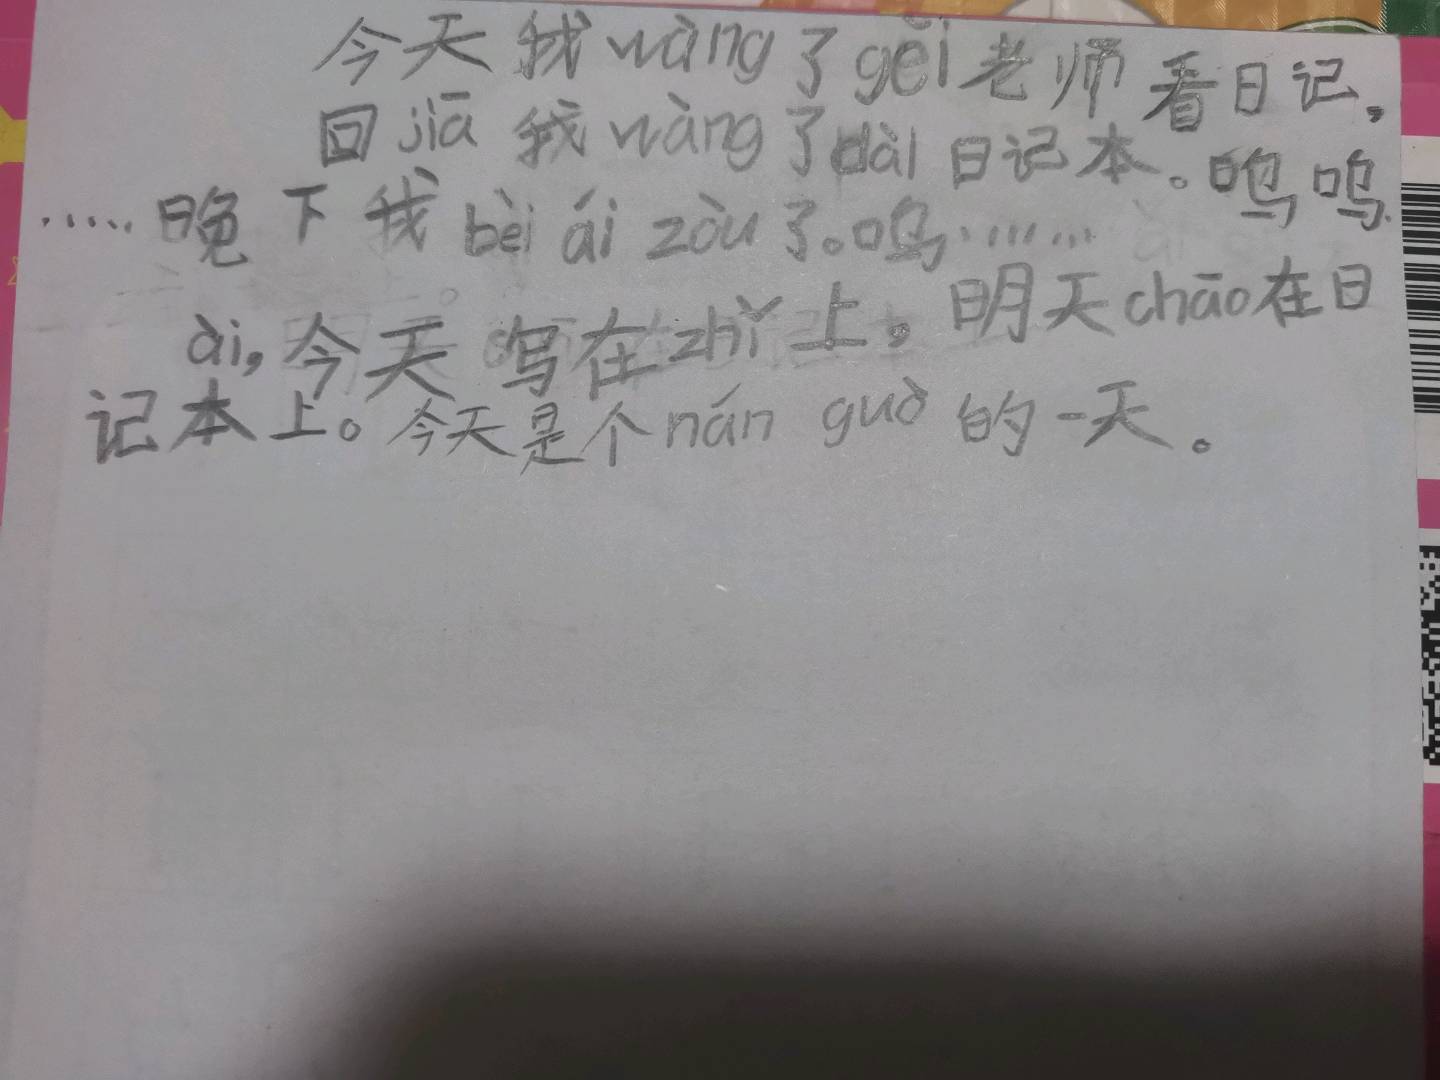 今天我wàng了gěi老师看日记，
回jiā我wàng了dài日记本。呜呜
……晚下我bèi ái zòu了。呜……
ài，今天写在zhǐ上。明天chāo在日
记本上。今天是个nán guò的一天。